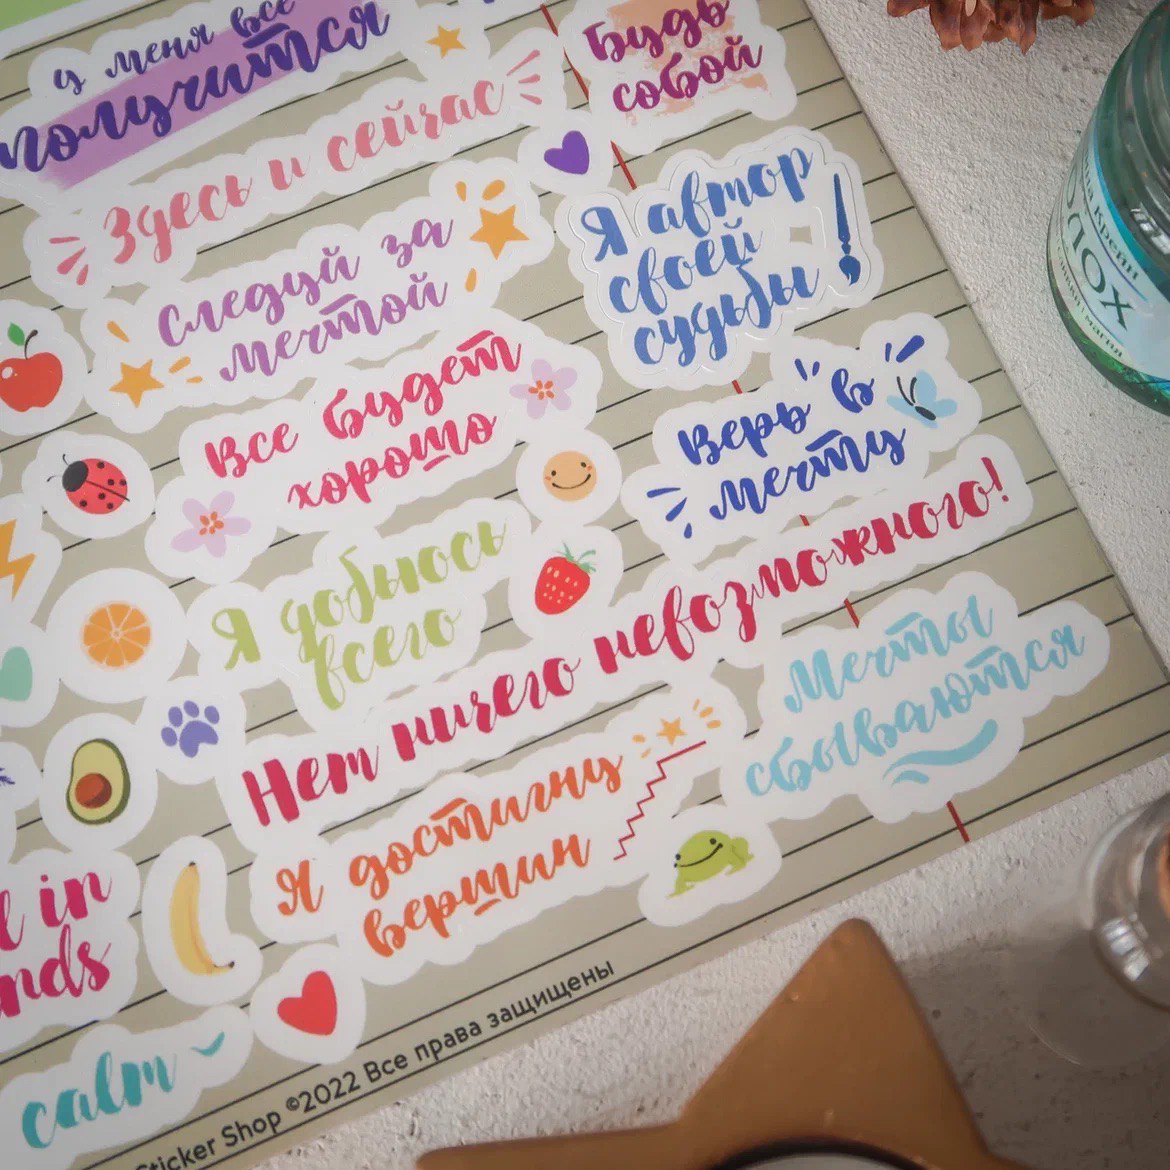 у меня все
получится
Будь
собой
Здесь и сейчас
Следуй за
мечтой
Я автор
своей
судьбы
Все будет
хорошо
Верь в
мечту
Я добьюсь
всего
Нет ничего невозможного!
Мечты
сбываются
Я достигну
вершин
in
calm
Sticker Shop ©2022 Все права защищены
Крейн